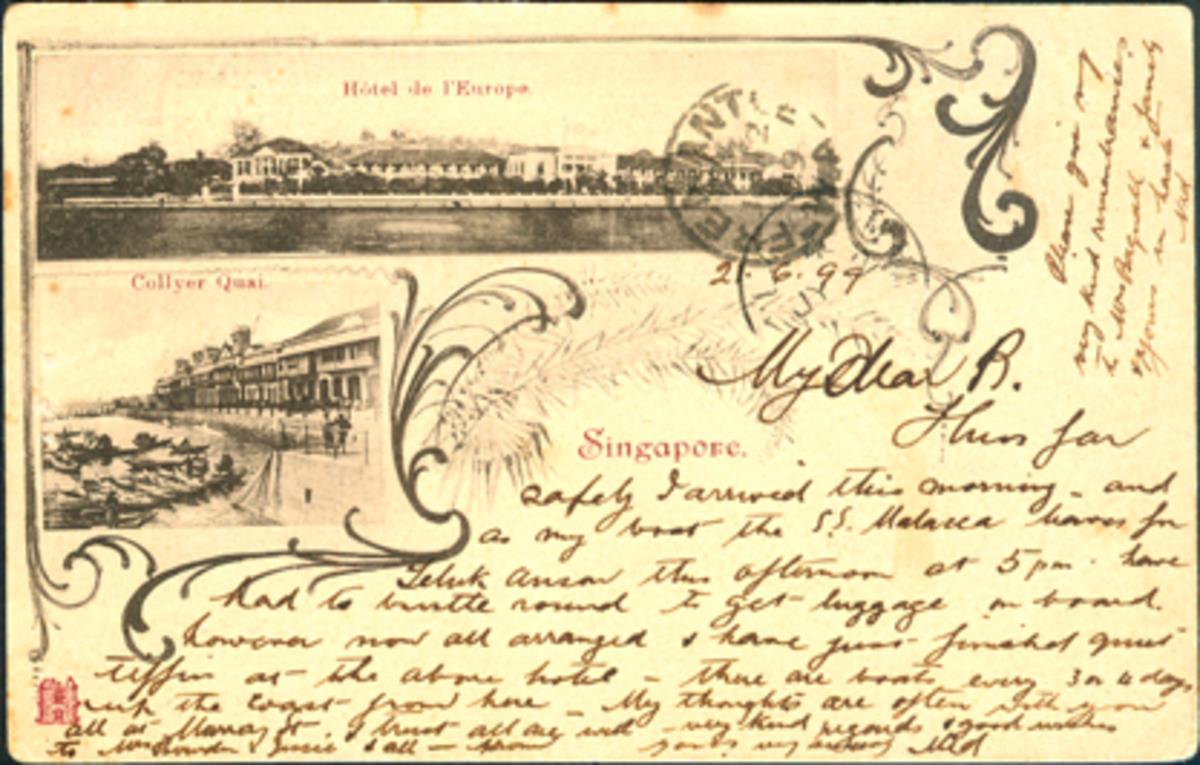 Hôtel de l'Europe.
Collyer Quai.
Singapore.
2.6.99
My Dear R.
Thus far
safely I arrived this morning - and
as my boat the S.S. Malacca leaves for
Teluk Anson this afternoon at 5 pm. have
had to bustle round to get luggage on board.
however now all arranged & have just finished quiet
tiffin at the above hotel - there are boats every 3 or 4 days
up the coast from here - My thoughts are often with you
all at . I trust all are well - very kind regards & good wishes
to Mrs & & all -
Please give my
my kind remembrances
to Mrs & family